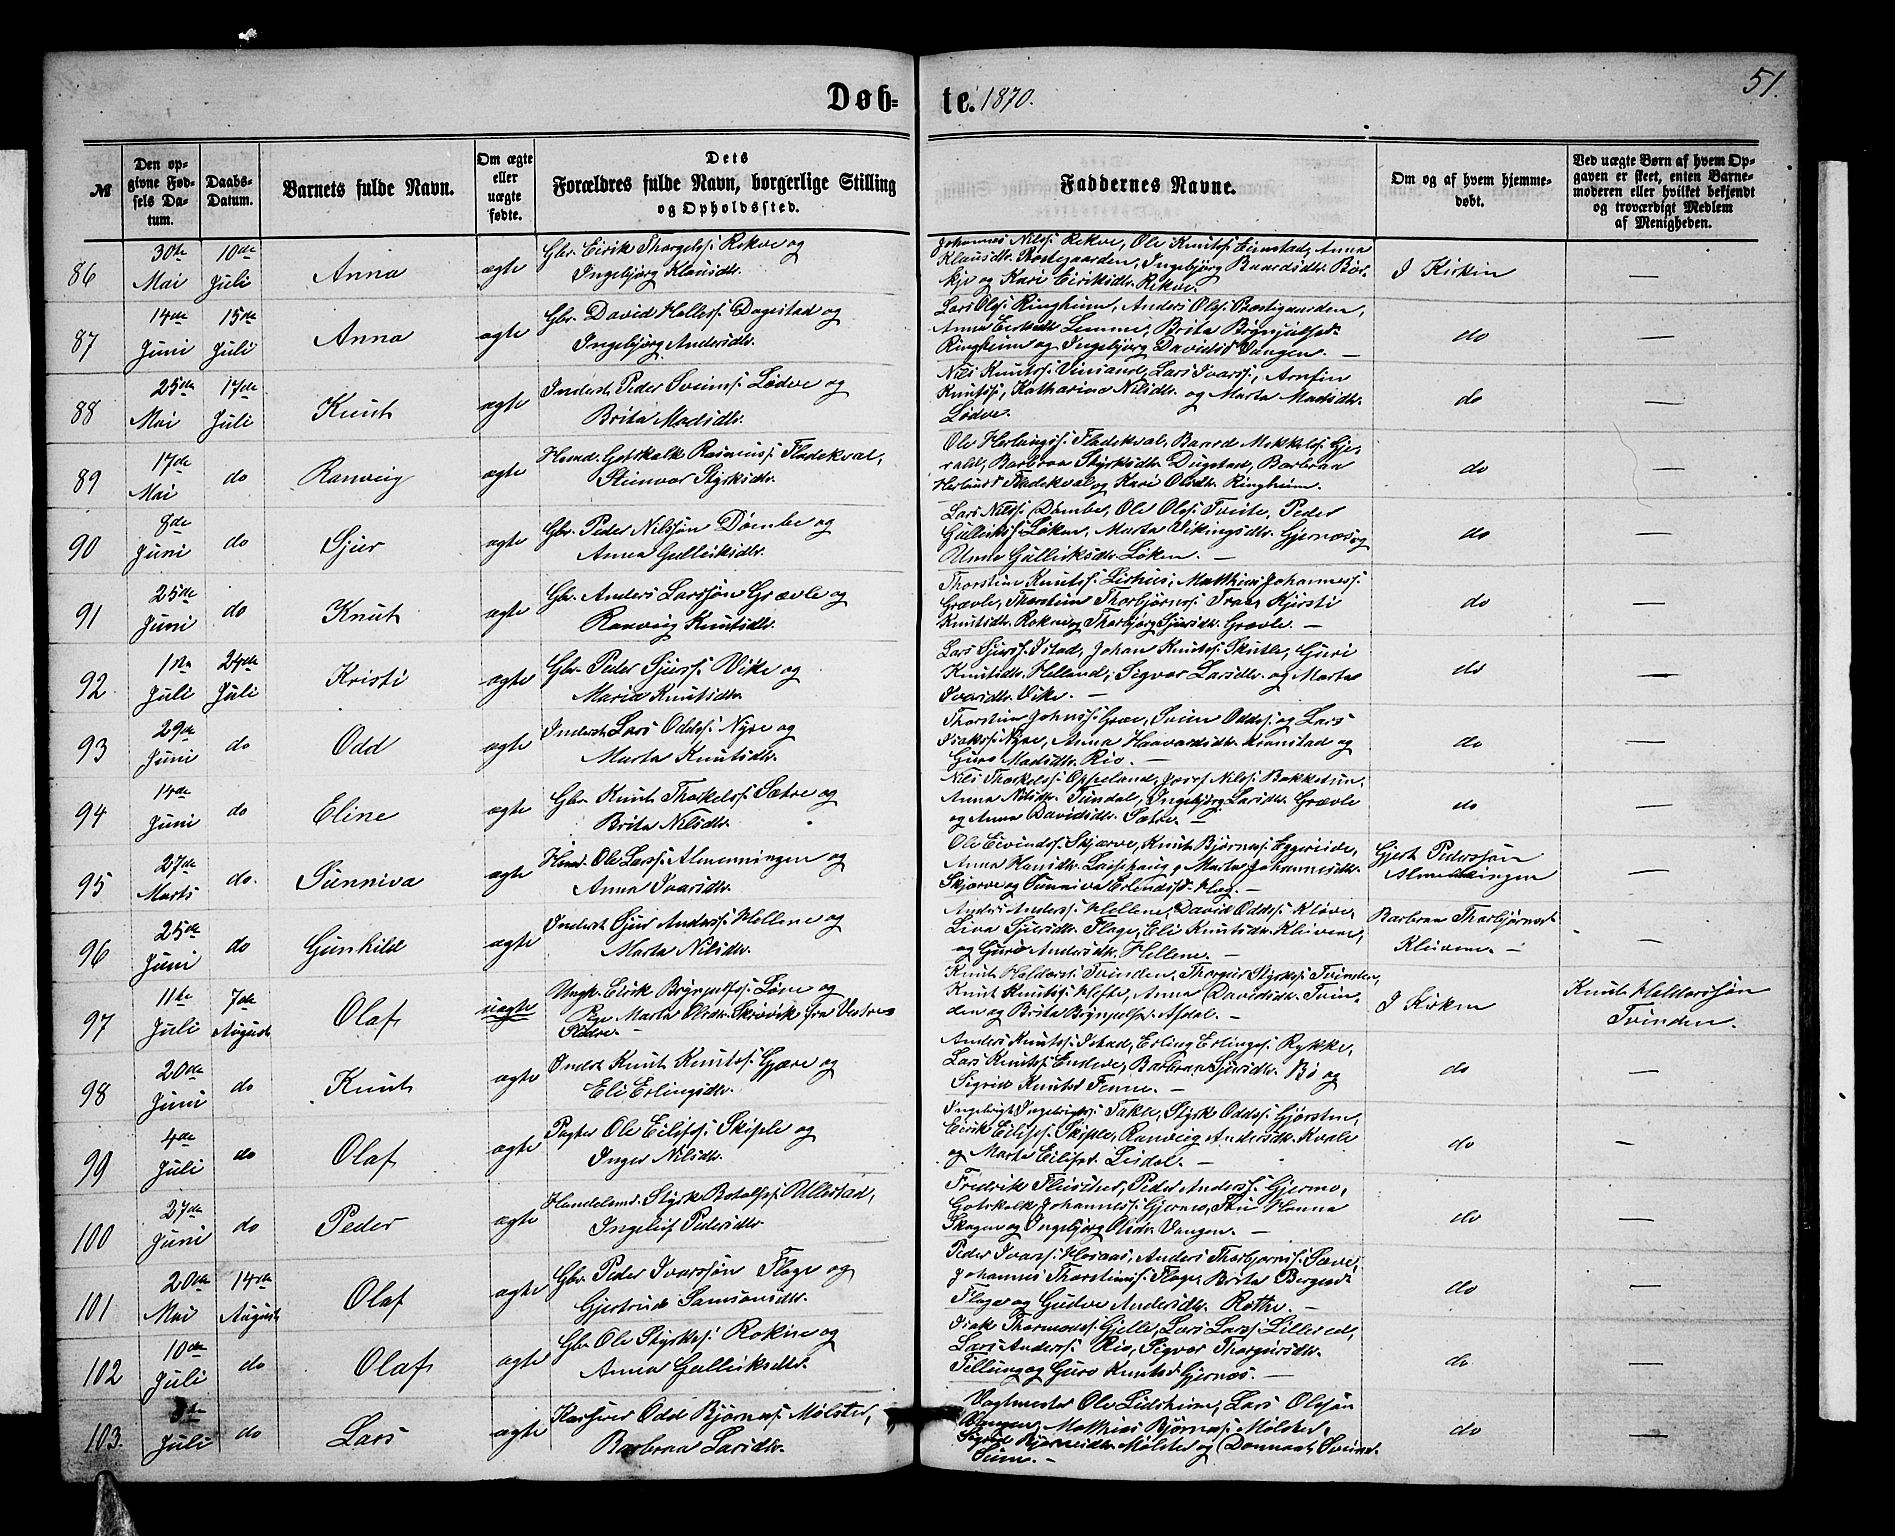 Døb-
te. 1870.
51.
№
Den op-
givne Fød-
sels Da-
tum.
Daabs-
Datum.
Barnets fulde Navn.
Om ægte
eller
uægte
fødte.
Dets
Forældres fulde Navn, borgerlige Stilling
og Opholdssted.
Faddernes Navne.
Om og af hvem hjemme-
døbt.
Ved uægte Børn af hvem Op-
gaven er skeet, enten Barne-
moderen eller hvilket bekjendt
og troværdigt Medlem
af Menigheden.
86
30te
Mai
10de
Juli
Anna
ægte
Gbr. Eirik Thorgilss. Rekve og
Ingebjørg Klausdtr.
Johannes Nilss. Rekve, Ole Knutss. Anna
Klausdtr. Ingebjørg Baardsdtr. Bør-
og Kari Eiriksdtr. Rekve.
I Kirken
—
87
14de
Juni
15de
Juli
Anna
ægte
Gbr. David Dagestad og
Ingebjørg Andersdtr.
Lars Olss. Ringheim, Anders Olss. Præstegaarden,
Anna Brita Brynjulfsd.
Ringheim og Ingebjørg Davidsd. Vangen. —
do
—
88
25de
Mai
17de
Juli
Knut
ægte
Inderst Peder Sveinss. Lødve og
Brita Madsdtr.
Nils Knutss. Lars Ivarss., Arnfin
Knutss., Katharina Nilsdtr. og Marta Madsdtr.
Lødve.
do
—
89
17de
Mai
do
Ranveig
ægte
Gotskalk Rasmuss. Fladekval,
Steinvor Styrksdtr.
Ole Fladekval, Baard Mikkelss. Gje-
rald, Barbraa Styrksdtr. Dugstad, Barbraa
Fladekval og Kari Olsdtr. Ringheim.
do
—
90
8de
Juni
do
Sjur
ægte
Gbr. Peder Nilssøn Dømbe og
Anna Gulleiksdtr.
Lars Nilss. Dømbe, Ole Olss. Tveite, Peder
Gulleikss. Løken, Marta Vikingsdtr. Gjernæs og
Anna Gulleiksdtr. Løken. —
do
—
91
25de
Juni
do
Knut
ægte
Gbr. Anders Larssøn Grævle og
Ranveig Knutsdtr.
Thorstein Knutss. Lirhus, Mathias Johanness.
Grævle, Thorstein Thorbjørnss. Kjersti
Knutsdtr. Rokne og Thorbjørg Sjursdtr. Grævle. —
do
—
92
1ste
Juli
24de
Juli
Kristi
ægte
Gbr. Peder Sjurss. Vike og
Maria Knutsdtr.
Lars Sjurss. Istad, Johan Knutss. Skutle, Guri
Knutsdtr. Helland, Sigvor Larsdtr. og Marta
Ivarsdtr. Vike. —
do
—
93
29de
Juni
do
Odd
ægte
Inderst Lars Oddss. Nyre og
Marta Knutsdtr.
Thorstein Johnss. Græe, Svein Oddss. og Lars
Isakss. Nyre, Anna Haavardsdtr. og
Guro Madsdtr. Rio. —
do
—
94
14de
Juni
do
Eline
ægte
Gbr. Knut Thorkelss. Sætre og
Brita Nilsdtr.
Nils Thorkelss. Oppeland, Josef Nilss. Bakketun,
Anna Nilsdtr. Tundal, Ingebjørg Larsdtr. Grævle
og Anna Davidsdtr. Sætre. —
do
—
95
27de
Marts
do.
Sunniva
ægte
Ole Larss. Almenningen og
Anna Ivarsdtr.
Ole Eivindss. Skjerve, Knut Bjørnss. Eggereide,
Anna Hansdtr. og Marta Johannesdtr.
Skjerve og Sunniva Erlendsd. Hæg. —
Gjert Pederssøn
Almenningen
—
96
25de
Juni
do
Gunhild
ægte
Inderst Sjur Anderss. Hellene og
Marta Nilsdtr.
Anders Anderss. Hellene, David Oddss. Kløve,
Liva Sjursdtr. Flage, Eli Knutsdtr. Kleivene,
og Guro Andersdtr. Hellene. —
Barbraa Thorbjørnsd.
Kleivene. —
—
97
11te
Juli
7de
August
Olaf
uægte
Ungk. Eirik Brynjulfss. Løne og
Pge Marta Olsdtr. Skrövik, fra Vestre
Slidre. —
Knut Tvinden, Thorgeir Styrkss. Tvinden,
Knut Knutss. Hefte, Anna Davidsdtr. Tvin-
den og Brita Brynjulfsd. Afdal. —
I Kirken
Knut Haldorssøn
Tvinden.
98
20de
Juni
do
Knut
ægte
Inderst Knut Knutss. Gjære og
Eli Erlingsdtr.
Anders Knutss. Istad, Erling Erlingss. Rykke,
Lars Knutss. Endeve, Barbraa Sjursdtr. Bø og
Sigrid Knutsd. Fenne. —
do
—
99
4de
Juli
do
Olaf
ægte
Pagter Ole Eilifss. Skiple og
Inger Nilsdtr.
Ingebrigt Ingebrigtss. Takle, Styrk Oddss. Gjersten,
Eirik Eilifss. Skiple, Ranveig Andersdtr. Kvale
og Marta Eilifsd. Lidal. —
do
—
100
27de
Juni
do
Peder
ægte
Handelsmd. Styrk Botolfss. Ullestad,
Ingeleif Pedersdtr.
Fredrik Fleischer, Peder Anderss. Gjerme,
Gotskalk Johanness. Gjernes, Hanna
Skogen og Ingebjørg Olsdtr. Vangen. —
do
—
101
20de
Mai
14de
August
Olaf
ægte
Gbr. Peder Ivarssøn Flage og
Gjertrud Samsonsdtr.
Peder Ivarss. Hosaas, Anders Thorbjørnss. Sæve,
Johannes Thorsteinss. Flage, Brita
Flage og Gudve Andersdtr. Rothe. —
do
—
102
10de
Juli
do
Olaf
ægte
Gbr. Ole Styrkss. Rokne og
Anna Gulleiksdtr.
Isak Thormodss. Gjelle, Lars Larss. Lillered,
Lars Anderss. Rio, Sigvor Thorgersdtr.
Tillung og Guro Knutsd. Gjernæs. —
do
—
103.
Juli
do
Lars
ægte
Odd Bjørnss. Mølster,
Barbraa Larsdtr.
Vagtmester Ole Lidsheim, Lars Olssøn
Vangen, Mathias Bjørnss. Mølster,
Sigrid Bjørnsdtr. Mølster og
—
do
—